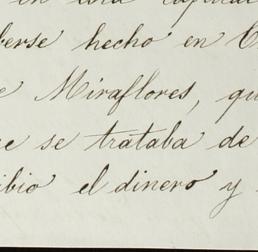 en una capital
berse hecho en C
e Miraflores, qu
ue se trataba de
ibio el dinero y